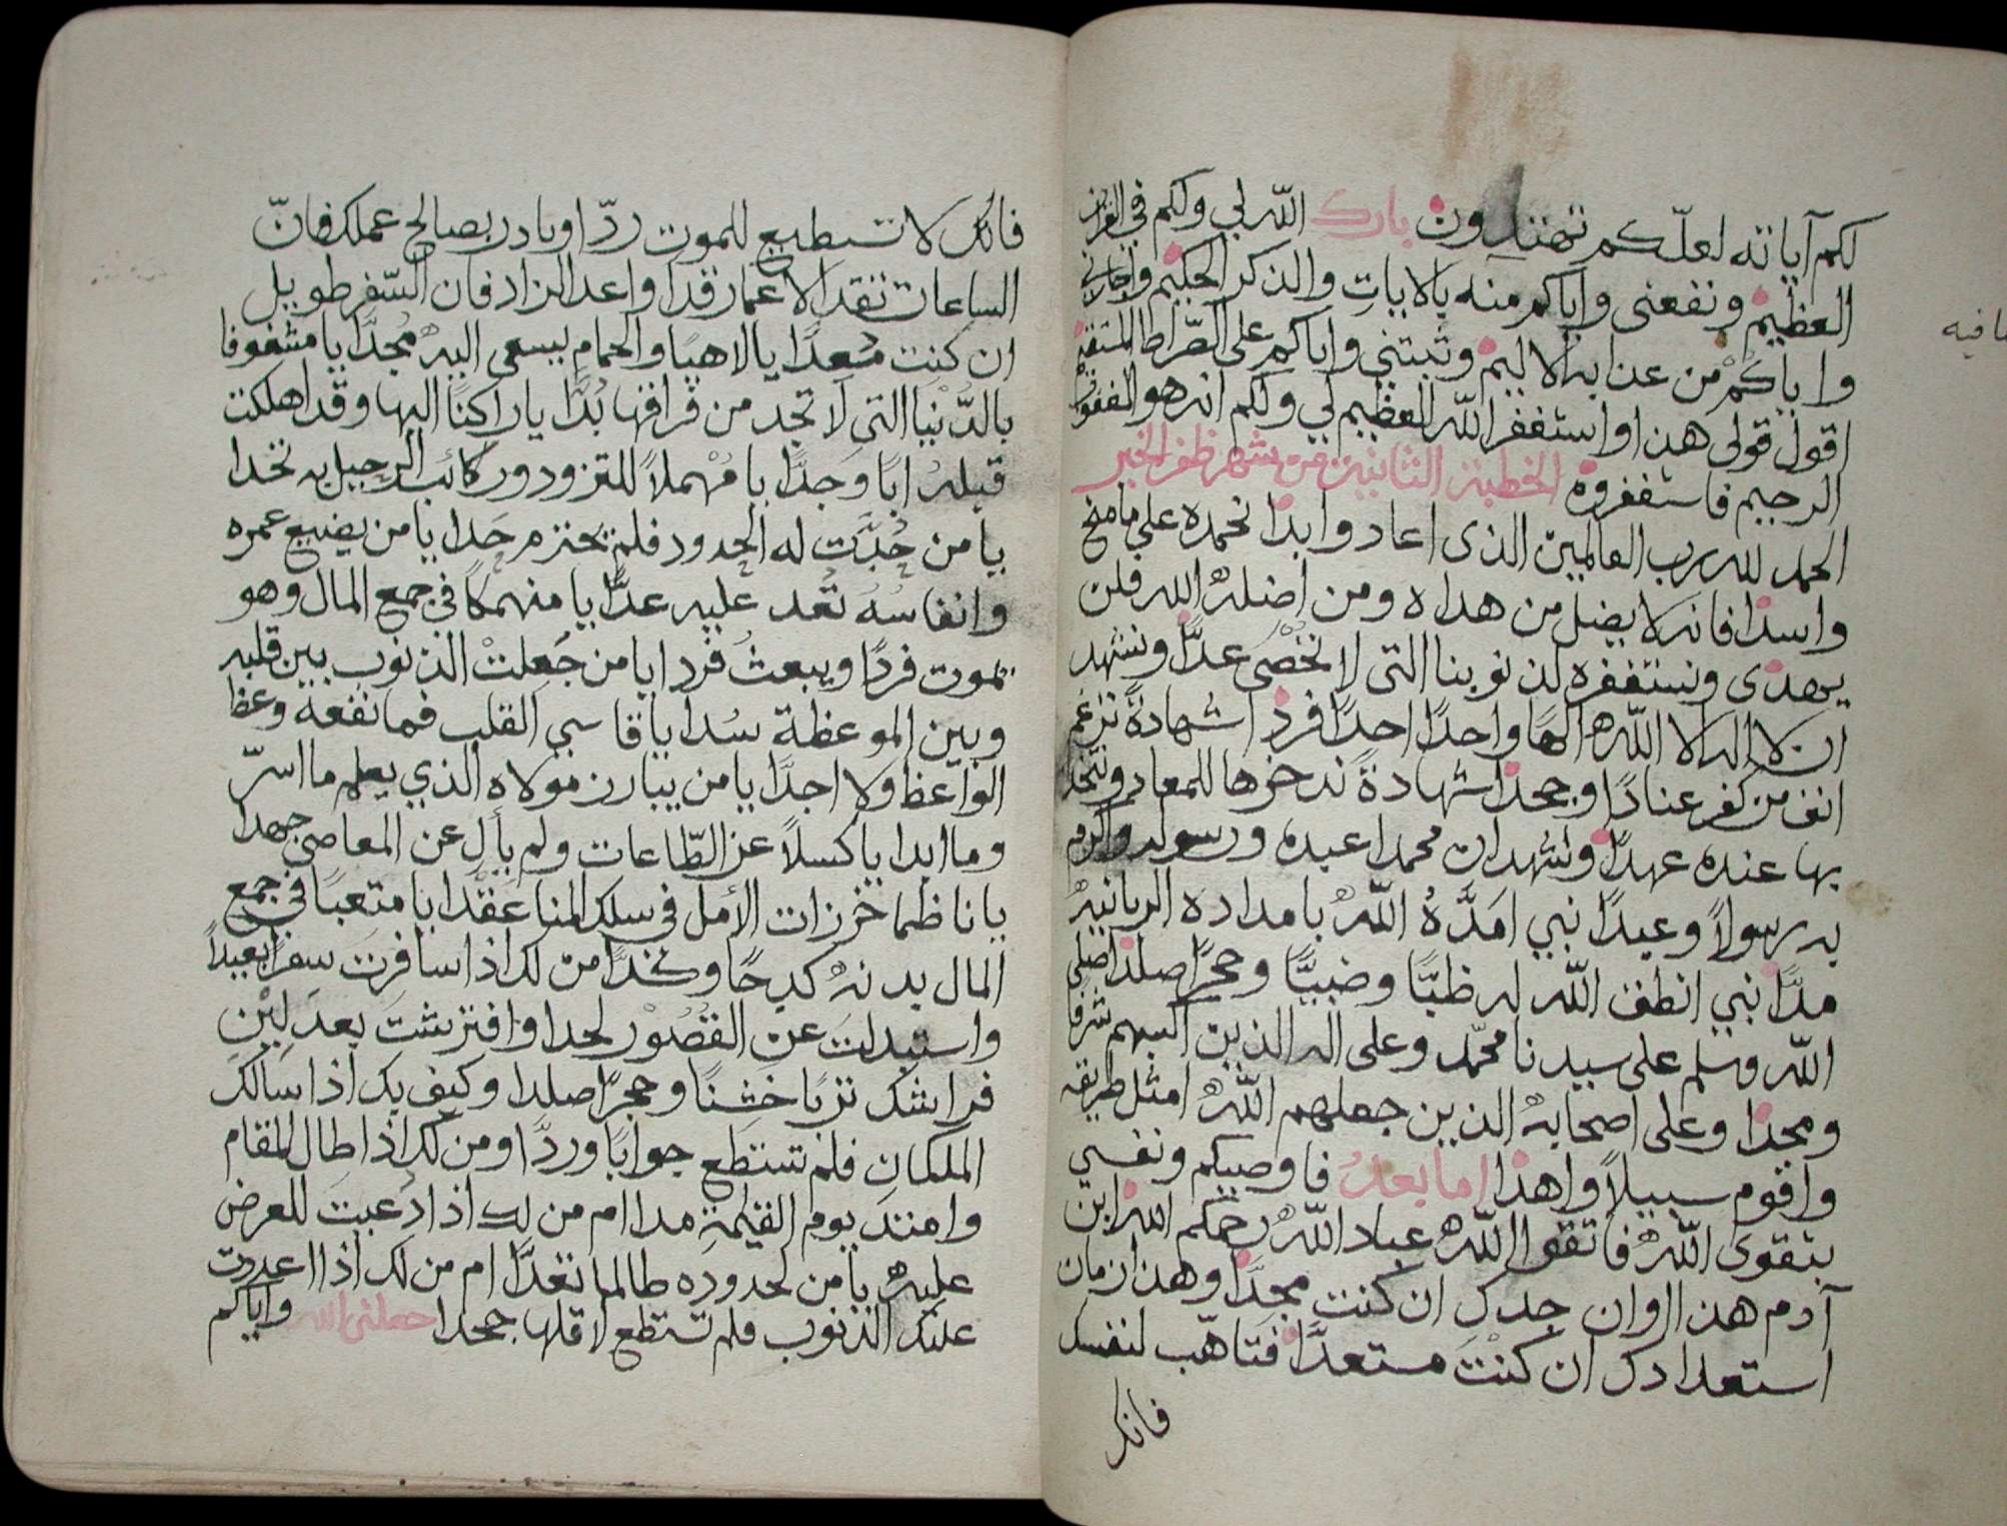 لكم آياته لعلّكم تهتدون بارك الله لي ولكم في القران
العظيم ونفعني واياكم منه بالايات والذكر الحكيم واجارني
واياكُمْ من عذابه الاليم وثبتني واياكم على الصّراط المستقيم
اقول قولي هذا واستغفر الله العظيم لي ولكم انه هو الغفور
الرحيم فاستغفروه الخطبة الثانية من شهر ظفر الخير
الحمد لله رب العالمين الذي اعاد وابدا نحمده على ما منح
واسدا فانه لا يضل من هداه ومن اضله الله فلن
يهدى ونستغفره لذنوبنا التي لا تحصى عدًّا ونشهد
ان لا اله الا الله الهًا واحدًا احدًا فردا شهادةً ترغم
انف من كفر عنادًا وجحدا شهادةً ندخرها للمعاد ونتخذ
بها عنده عهدًا ونشهد ان محمدا عبده ورسوله واكرم
به رسولاً وعبدًا نبي امَدَّهُ الله بامداده الربانيه
مدًّا نبي انطق الله له ظبيًا وضبيًّا وحجرًا صلدا صلى
الله وسلم على سيدنا محمّد وعلى اله الذين اكسبهم شرفا
ومجدا وعلى اصحابه الذين جعلهم الله امثل طريقه
واقوم سبيلاً واهدا اما بعد فاوصيكم ونفسي
بتقوى الله فاتقوا الله عباد الله رحمكم الله ابن
آدم هذا اوان جدك ان كنت مجدًّا وهذا زمان
استعدادك ان كنْتَ مستعدًّا فتاهّب لنفسك
فانك
مافيه
فانك لا تسطيع للموت ردّا وبادر بصالح عملك فانّ
الساعات تقد الاعمار قدا واعد الزاد فان السّفر طويل
ان كنت مُعدًّا يا لاهيًا والحمام يسعى اليه مُجدًّا يا مشغوفا
بالدّنيا التي لا تجد من فراقها بُدًّا يا راكنًا اليها وقد اهلكت
قبله ابًا وَجدًّا يا مُهْملاً للتزود وركائب الرحيل به تحدا
يا من حُدَّت له الحدود فلم يحترم حَدا يا من يضيع عمره
وانفاسُهُ تُعد عليه عدًّا يا منهمكًا في جمع المال وهو
يموت فردًا ويبعثُ فردا يا من جَعلتْ الذنوب بين قلبه
وبين الموعظة سُدا يا قاسي القلب فما نفعه وعظ
الواعظ ولا اجدًّا يا من يبارز مولاه الذي يعلم ما اسرّ
وما ابدا يا كسلاً عن الطّاعات ولم يألِ عن المعاصي جهدا
يا ناظما خرزات الأمل في سلك المنا عَقدًا يا متعبًا في جمع
المال بدنه كدحًا وكدًّا من لك اذا سافرت سفرًا بعيدًا
واستبدلت عن القصُوْر لحدا وافترشت بعد لِيْنِ
فراشك تربًا خَشِنًا وحجرًا صلدا وكيف بك اذا سالك
الملكان فلم تستطع جوابًا وردًّا ومن لك اذا طال المقام
وامتدَ يوم القيمة مدا ام من لك اذا دُعيت للعرض
عليه يا من لحدوده طالما تعدَّا ام من لك اذا اعددت
عليك الذنوب فلم تستطع لاقلها جحدا جعلني الله واياكم